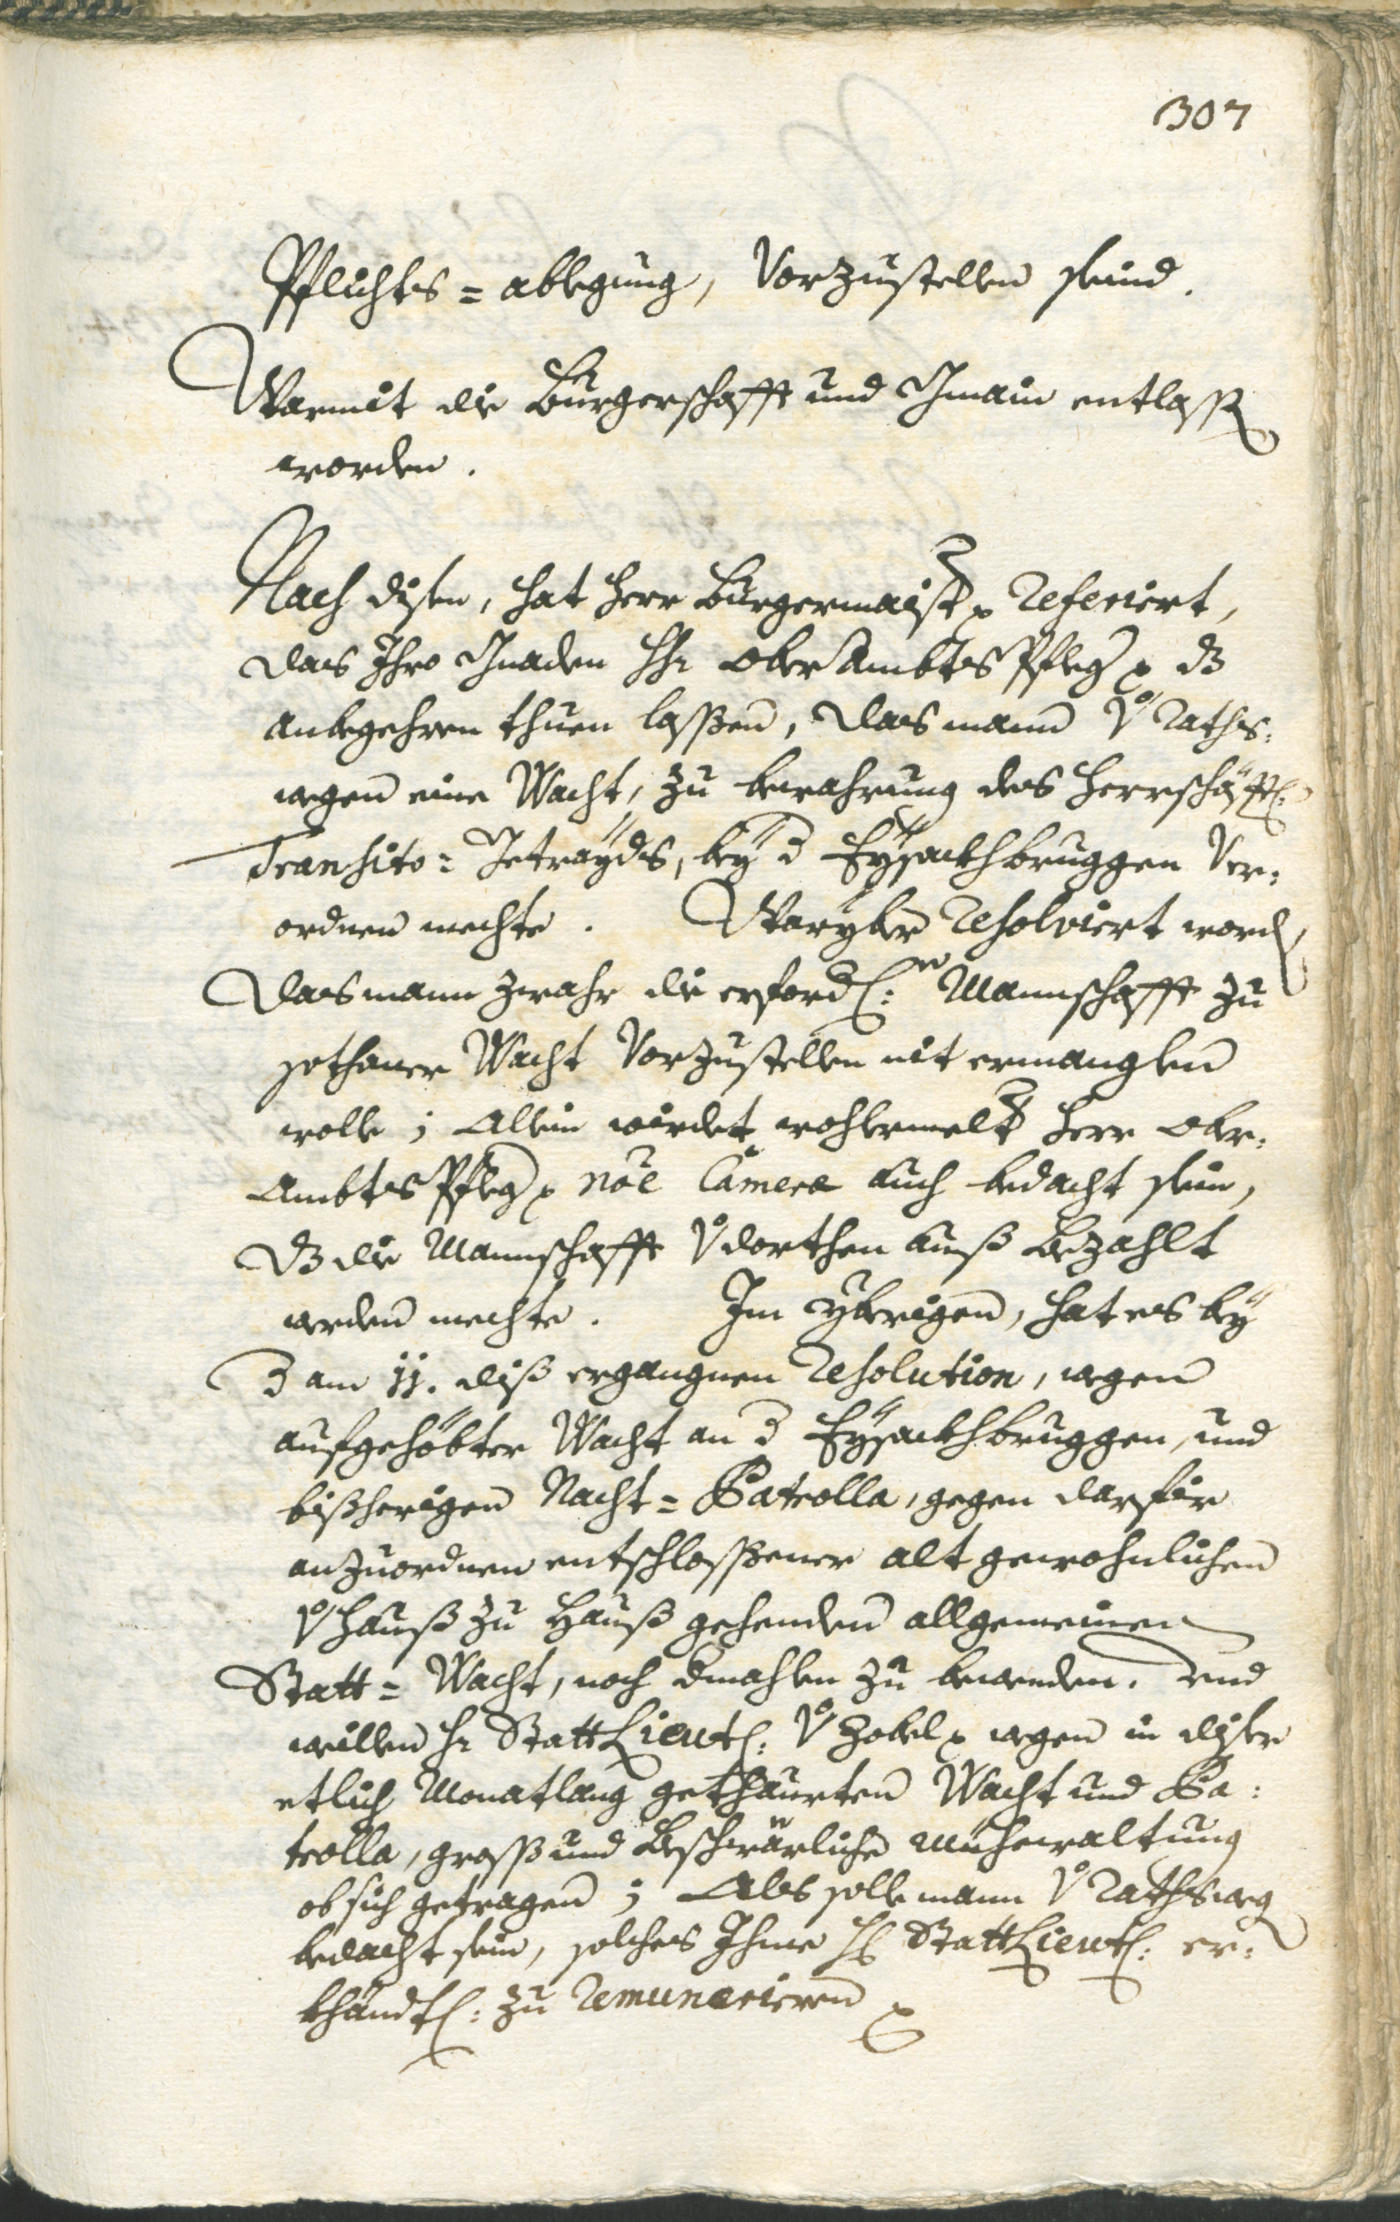 307
Pflichts = ablegung, Vorzustellen seind.
Warmit die Burgerschafft und Gmain entlassen
worden.
Nach disem, hat Herr Burgermaister Referiert,
das Ihro Gnaden Hr: Ober Ambts Pfleg(er) dz
anbegehren thuen lassen, das mann v: Raths:
wegen eine Wacht, zu bewahrung des Herrschäfftl:
Transito = Getraydts, bey d Eysackhbruggen Ver:
ordnen mechte. Waryber Resolviert worden,
das mann zwahr die erforderl: Mannschafft zu
sothaner Wacht Vorzustellen nit ermanglen
wolle; Allein würdet wohlermelter Herr Ober:
Ambts Pfleg(er) noe Camerae auch bedacht sein,
dz die Mannschafft v: dorthen auß bezahlt
werden mechte. Im ybrigen, hat es bey
d am 11. diß ergangnen Resolution, wegen
aufgehöbter Wacht an d Eysackhbruggen, und
bißherigen Nacht = Patrolla, gegen darfür
anzuordnen entschlossener alt gewohnlichen
v: Hauß zu Hauß gehenden allgemeinen
Statt = Wacht, noch dmahlen zu bewenden. Und
weillen Hr: Statt Lieut: v: Zobel wegen in diser
etlich Monatlang gethaurten Wacht und Pa:
trolla, groß und beschwärliche Müehewaltung
ob sich getragen; Als solle mann v: Rathsweg(en)
bedacht sein, solches Ihme H: Statt Lieut: er:
khandtl: zu Remunerieren